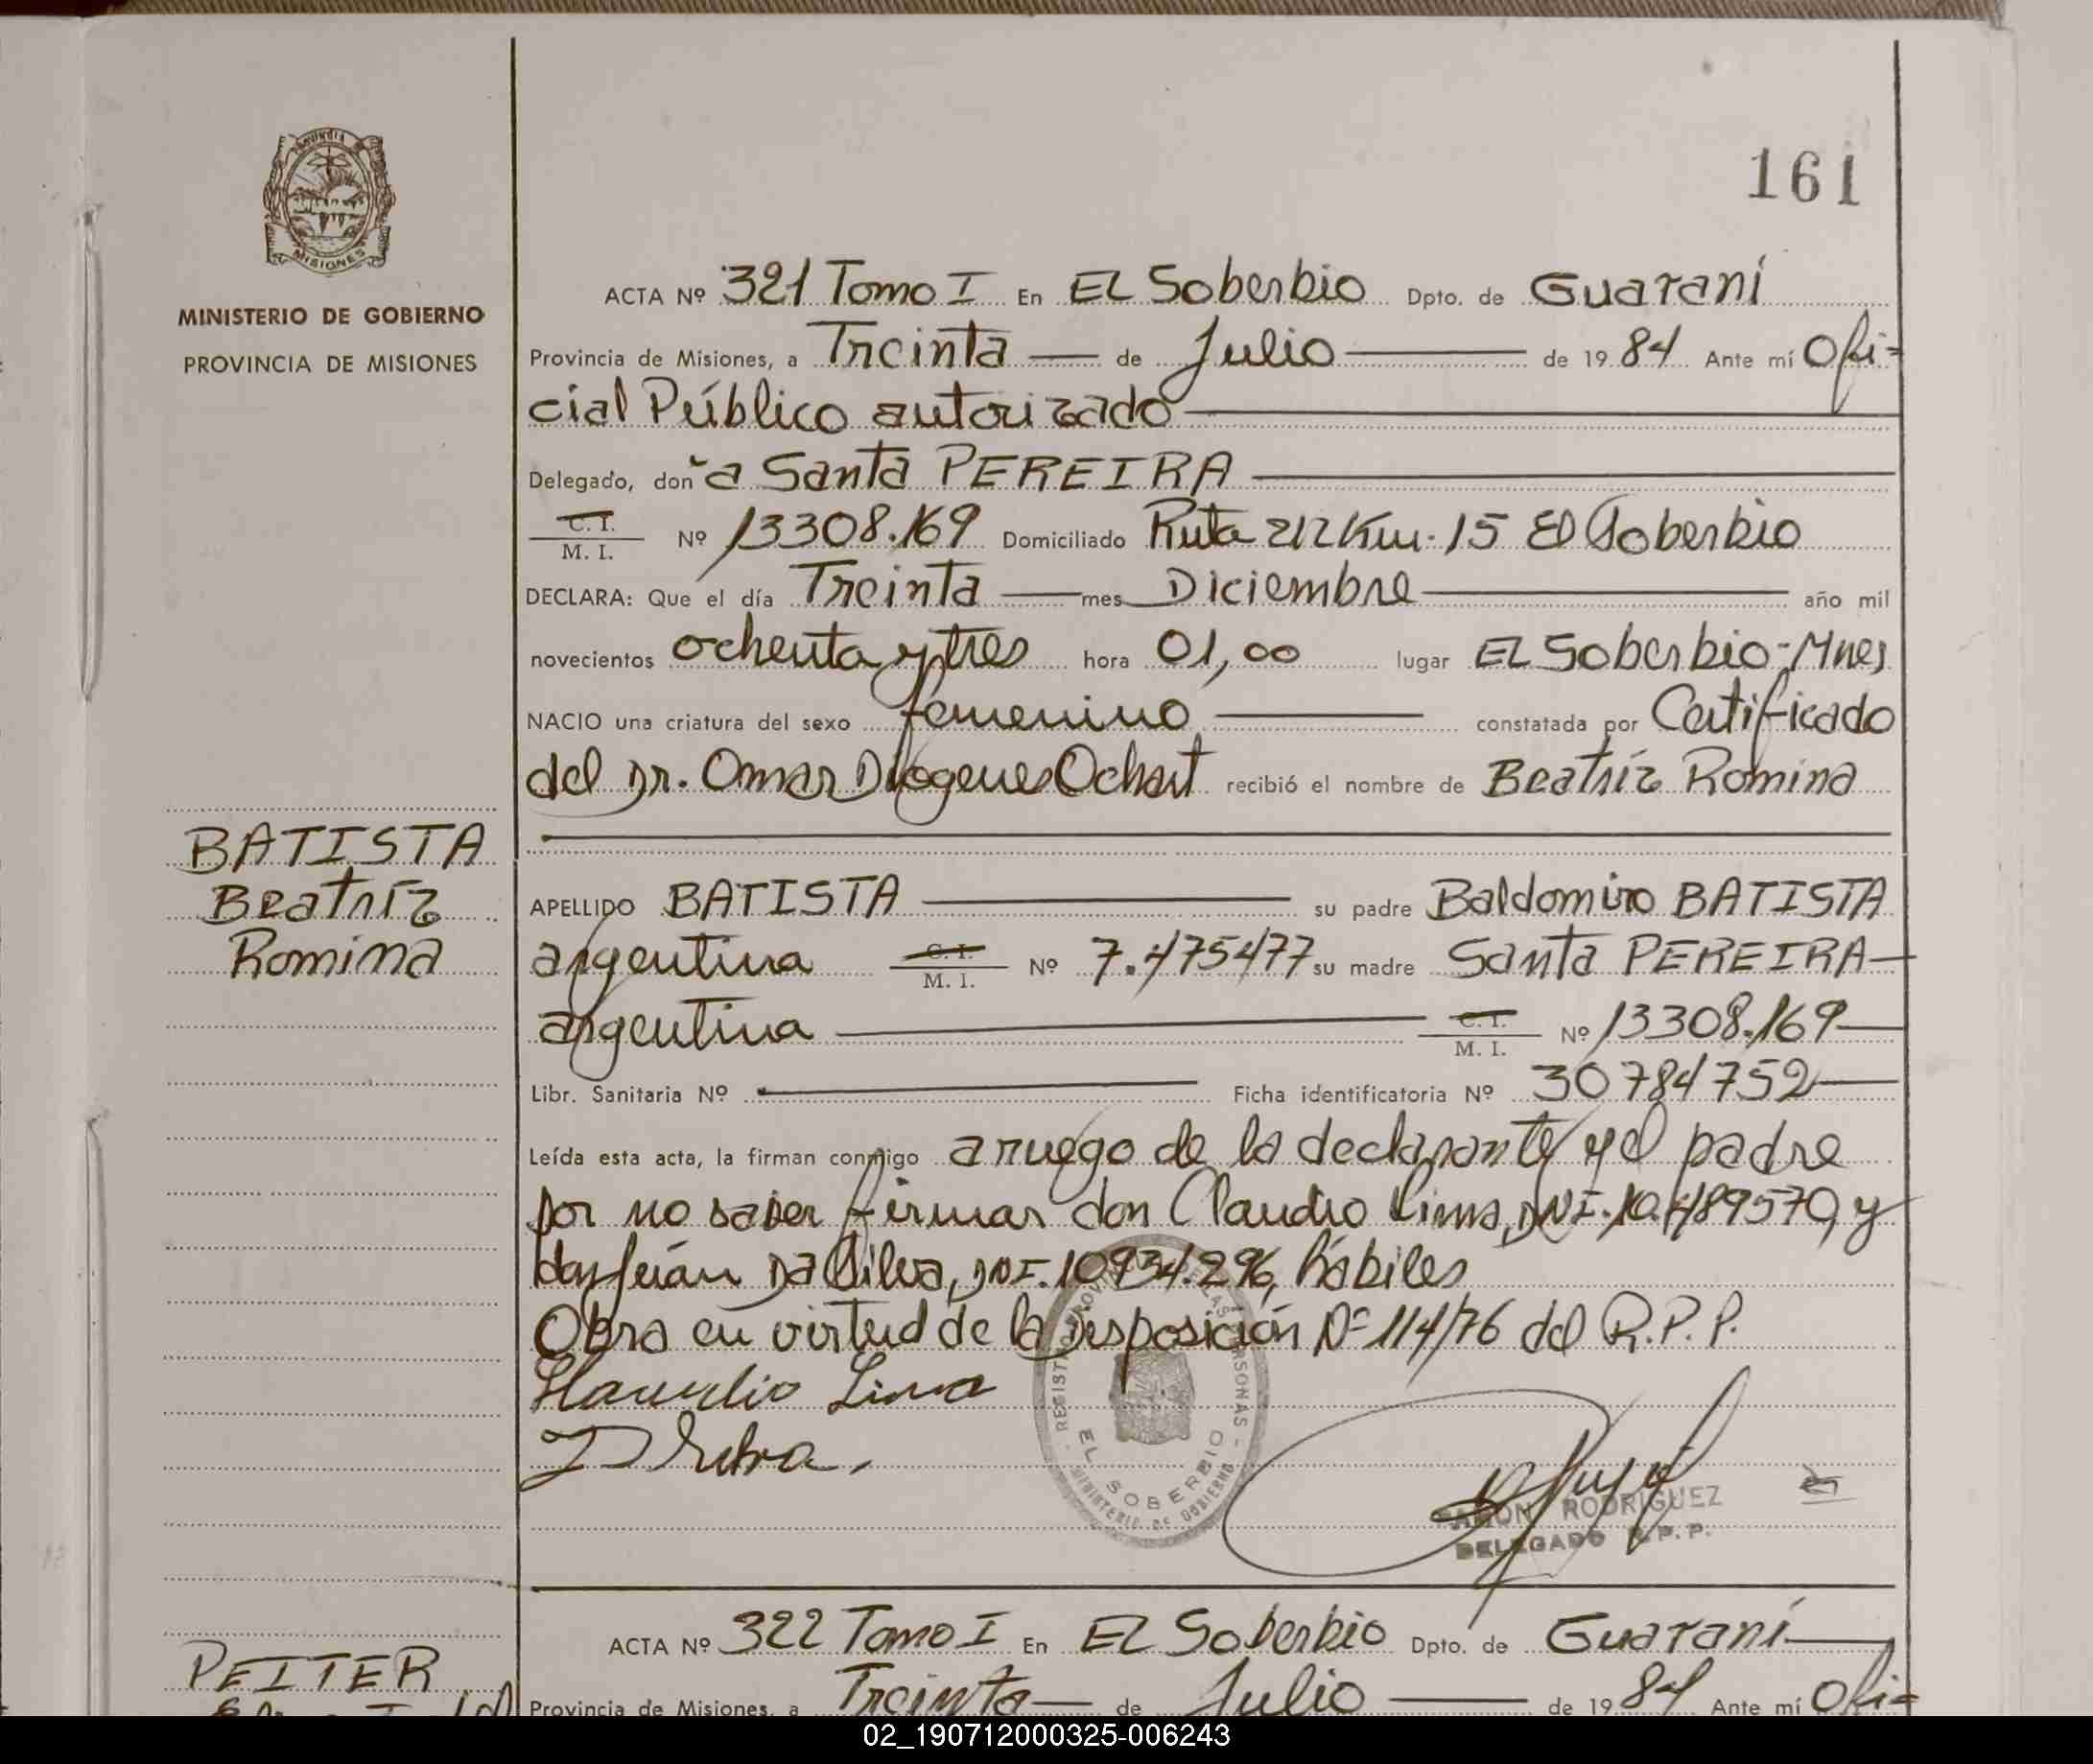 161
PROVINCIA
MISIONES
MINISTERIO DE GOBIERNO
PROVINCIA DE MISIONES
ACTA Nº 321 Tomo I En EL Soberbio Dpto. de Guaraní
Provincia de Misiones, a Treinta de Julio de 1984 Ante mí Ofi-
cial Público autorizado
Delegado, doña Santa PEREIRA
C. I.
M. I. Nº 13308.169 Domiciliado Ruta 212 Km. 15 El Soberbio
DECLARA: Que el día Treinta mes Diciembre año mil
novecientos ochenta y tres hora 01,00 lugar EL Soberbio-Mnes
NACIO una criatura del sexo femenino constatada por Certificado
del Dr. Omar Diogenes Ochart recibió el nombre de Beatríz Romina
BATISTA
Beatríz
Romina
APELLIDO BATISTA su padre Baldomiro BATISTA
argentina C. I.
M. I. Nº 7.475477 su madre Santa PEREIRA
argentina C. I.
M. I. Nº 13308.169
Libr. Sanitaria Nº Ficha identificatoria Nº 30784752
Leída esta acta, la firman conmigo a ruego de la declarante y el padre
por no saber firmar don Claudio Lima, DNI. 10.489570, y
don Juán Da Silva, DNI. 10934.296, hábiles
Obra en virtud de la Disposición Nº 114/76 del R.P.P.
Claudio Lima
REGISTRO PROVINCIAL DE LAS PERSONAS
EL SOBERBIO
MINISTERIO DE GOBIERNO
RAMON RODRIGUEZ
DELEGADO R.P.P.
ACTA Nº 322 Tomo I En EL Soberbio Dpto. de Guaraní
PEITER
Provincia de Misiones, a Treinta de Julio de 1984 Ante mí Ofi-
02_190712000325-006243